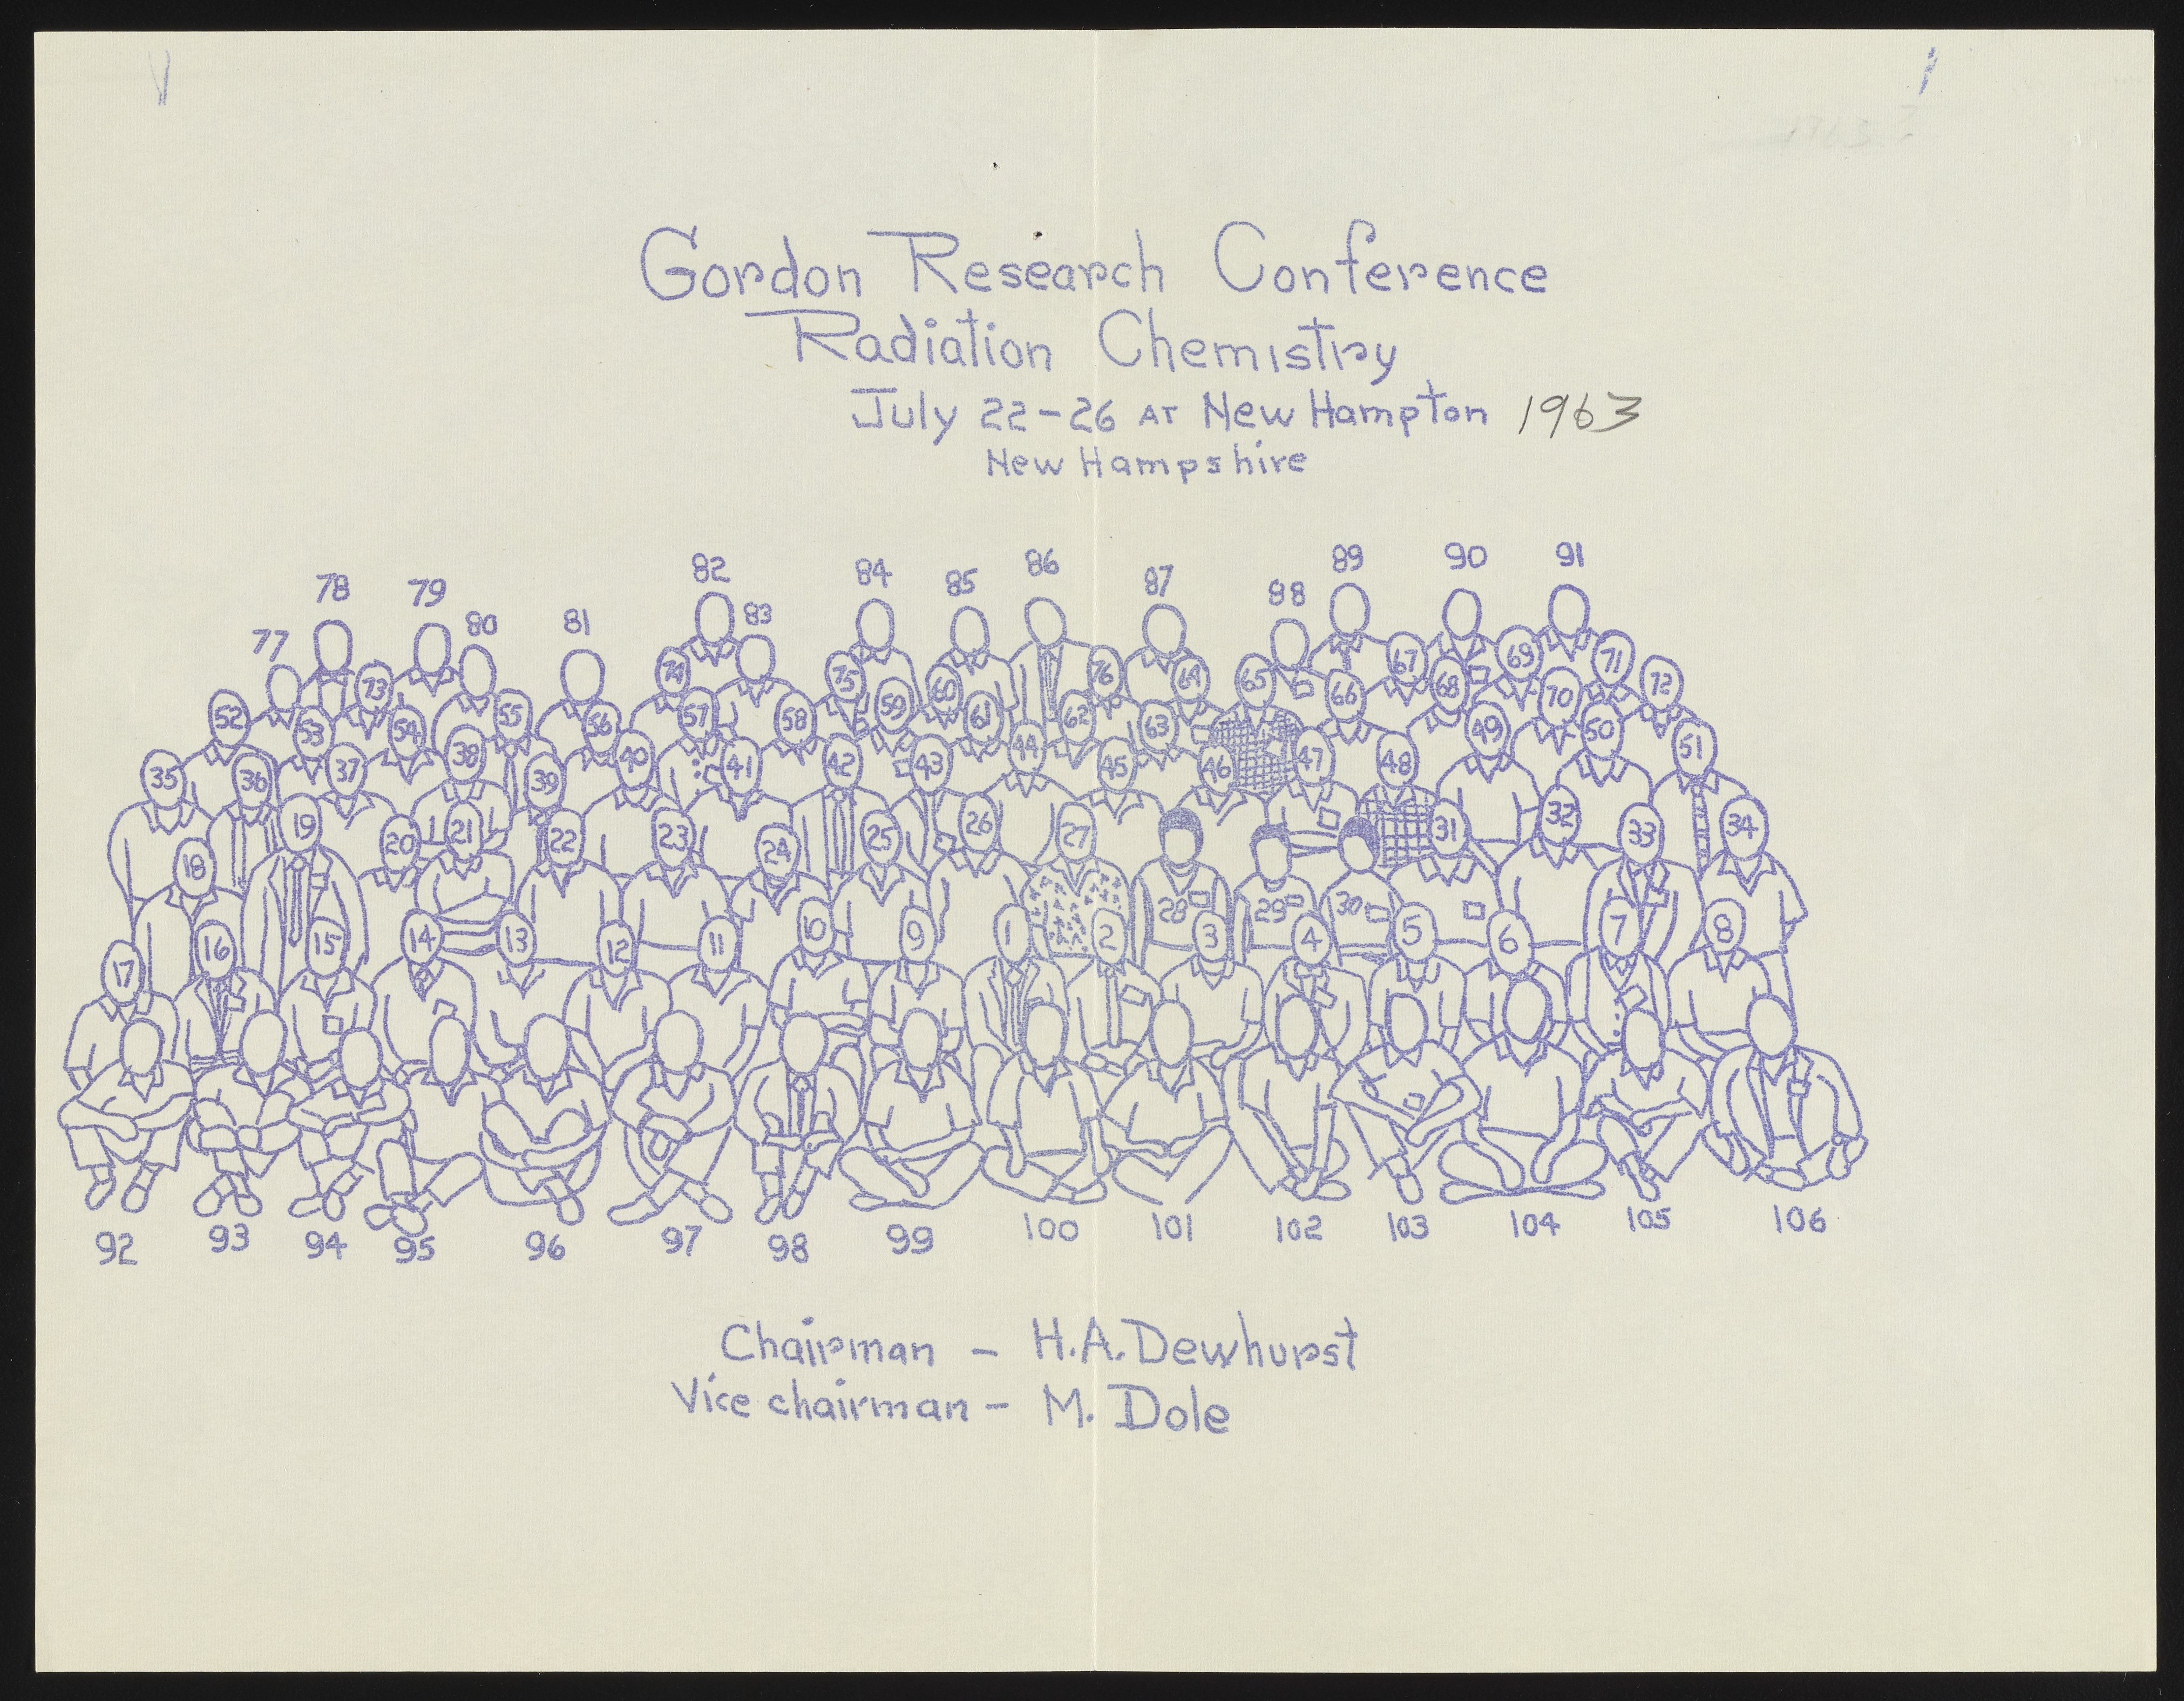 Gordon Research Conference
Radiation Chemistry
July 22-26 AT New Hampton 1963
New Hampshire
89 90 91
82 84 85 86 87 88
78 79 80 81 83
77
74 75 76 64 65 67 69 71
73 60 66 68 70 72
52 53 54 55 56 57 58 59 61 62 63 49 50 51
35 36 37 38 39 40 41 42 43 44 45 46 47 48
18 19 20 21 22 23 24 25 26 27 28 29 30 31 32 33 34
17 16 15 14 13 12 11 10 9 1 2 3 4 5 6 7 8
92 93 94 95 96 97 98 99 100 101 102 103 104 105 106
Chairman - H.A. Dewhurst
Vice chairman - M. Dole